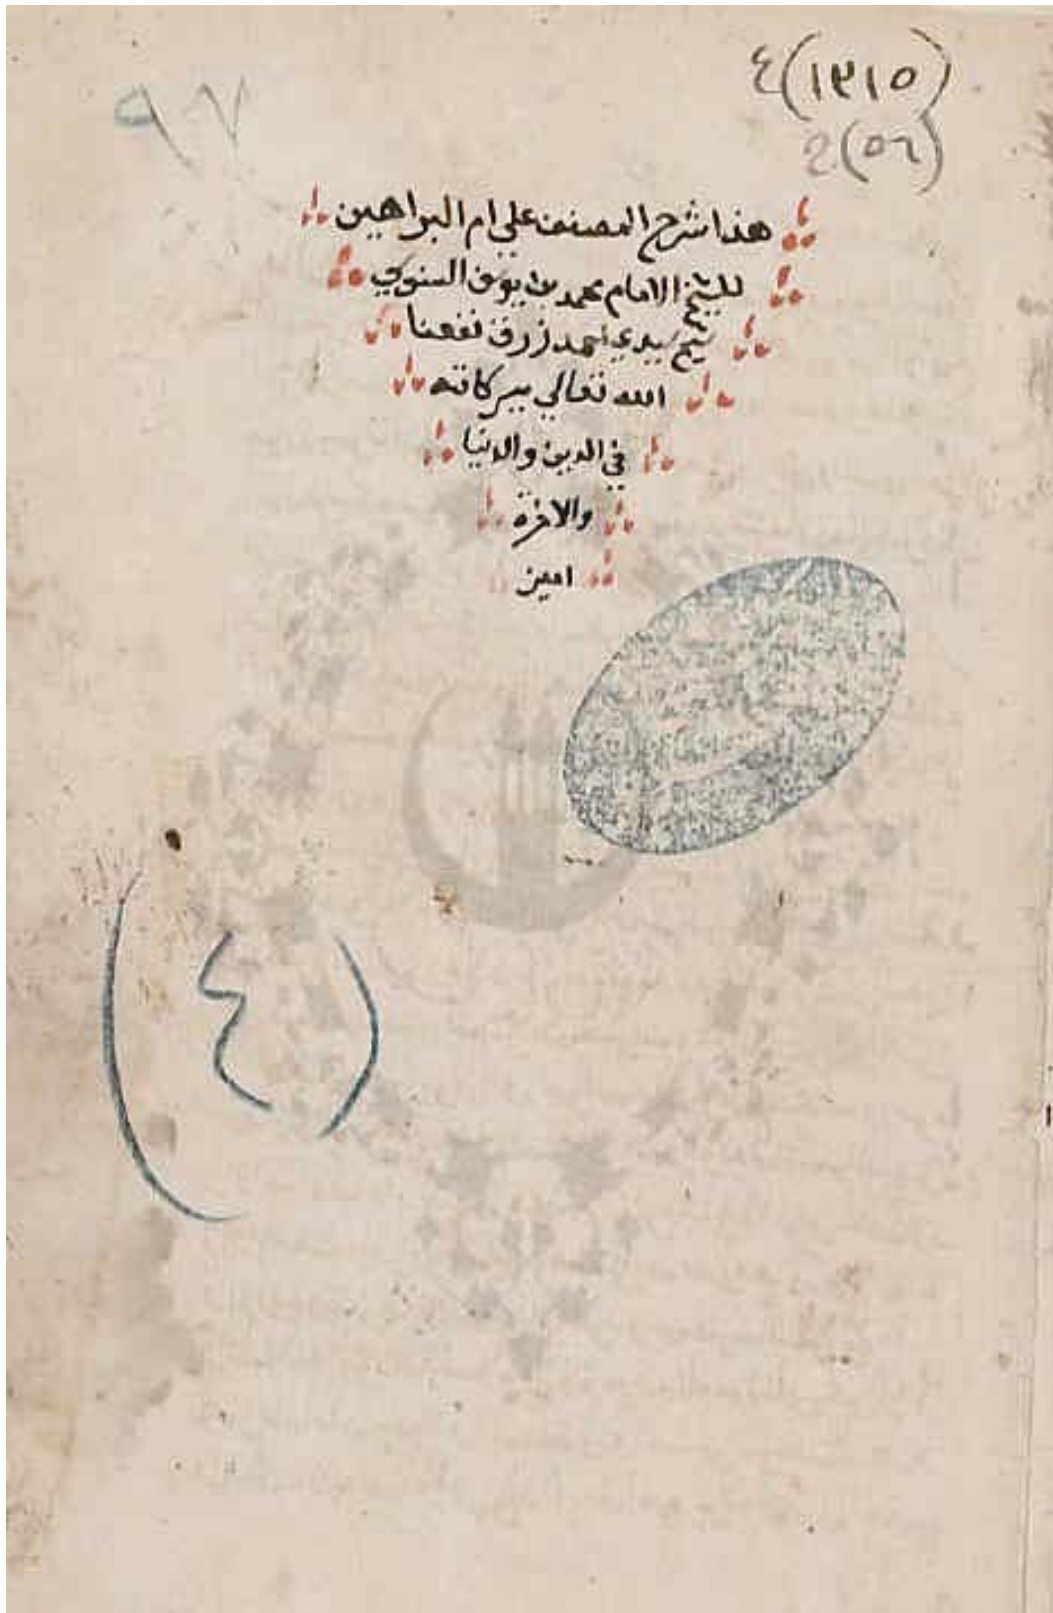 ٤(١٣١٥)
٩٧
(٥٦)
هذا شرح المصنف علي ام البراهين
للشيخ الامام محمد بن يوسف السنوسي
شيخ سيدي احمد زروق نفعنا
الله تعالي ببركاته
في الدين والدنيا
والاخرة
امين
(٤)